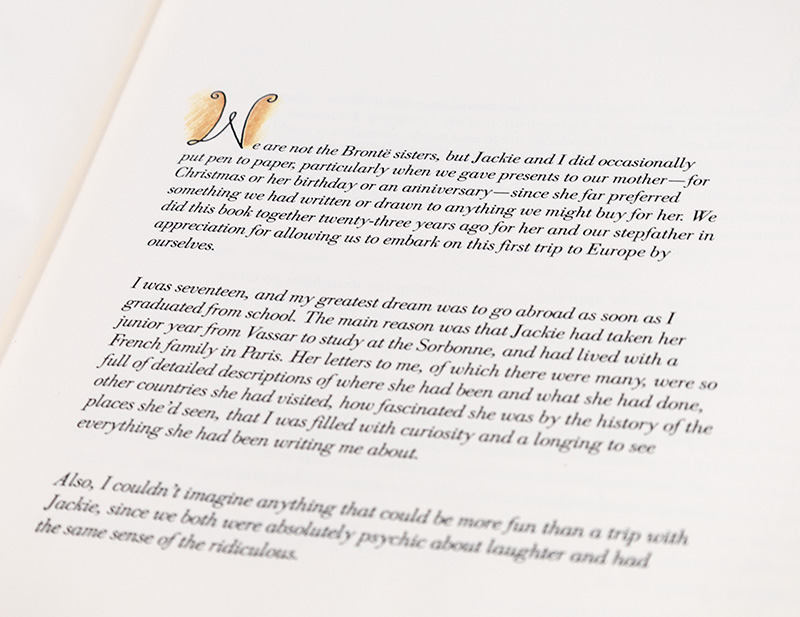 We are not the Brontë sisters, but Jackie and I did occasionally
put pen to paper, particularly when we gave presents to our mother—for
Christmas or her birthday or an anniversary—since she far preferred
something we had written or drawn to anything we might buy for her. We
did this book together twenty-three years ago for her and our stepfather in
appreciation for allowing us to embark on this first trip to Europe by
ourselves.
I was seventeen, and my greatest dream was to go abroad as soon as I
graduated from school. The main reason was that Jackie had taken her
junior year from Vassar to study at the Sorbonne, and had lived with a
French family in Paris. Her letters to me, of which there were many, were so
full of detailed descriptions of where she had been and what she had done,
other countries she had visited, how fascinated she was by the history of the
places she'd seen, that I was filled with curiosity and a longing to see
everything she had been writing me about.
Also, I couldn't imagine anything that could be more fun than a trip with
Jackie, since we both were absolutely psychic about laughter and had
the same sense of the ridiculous.